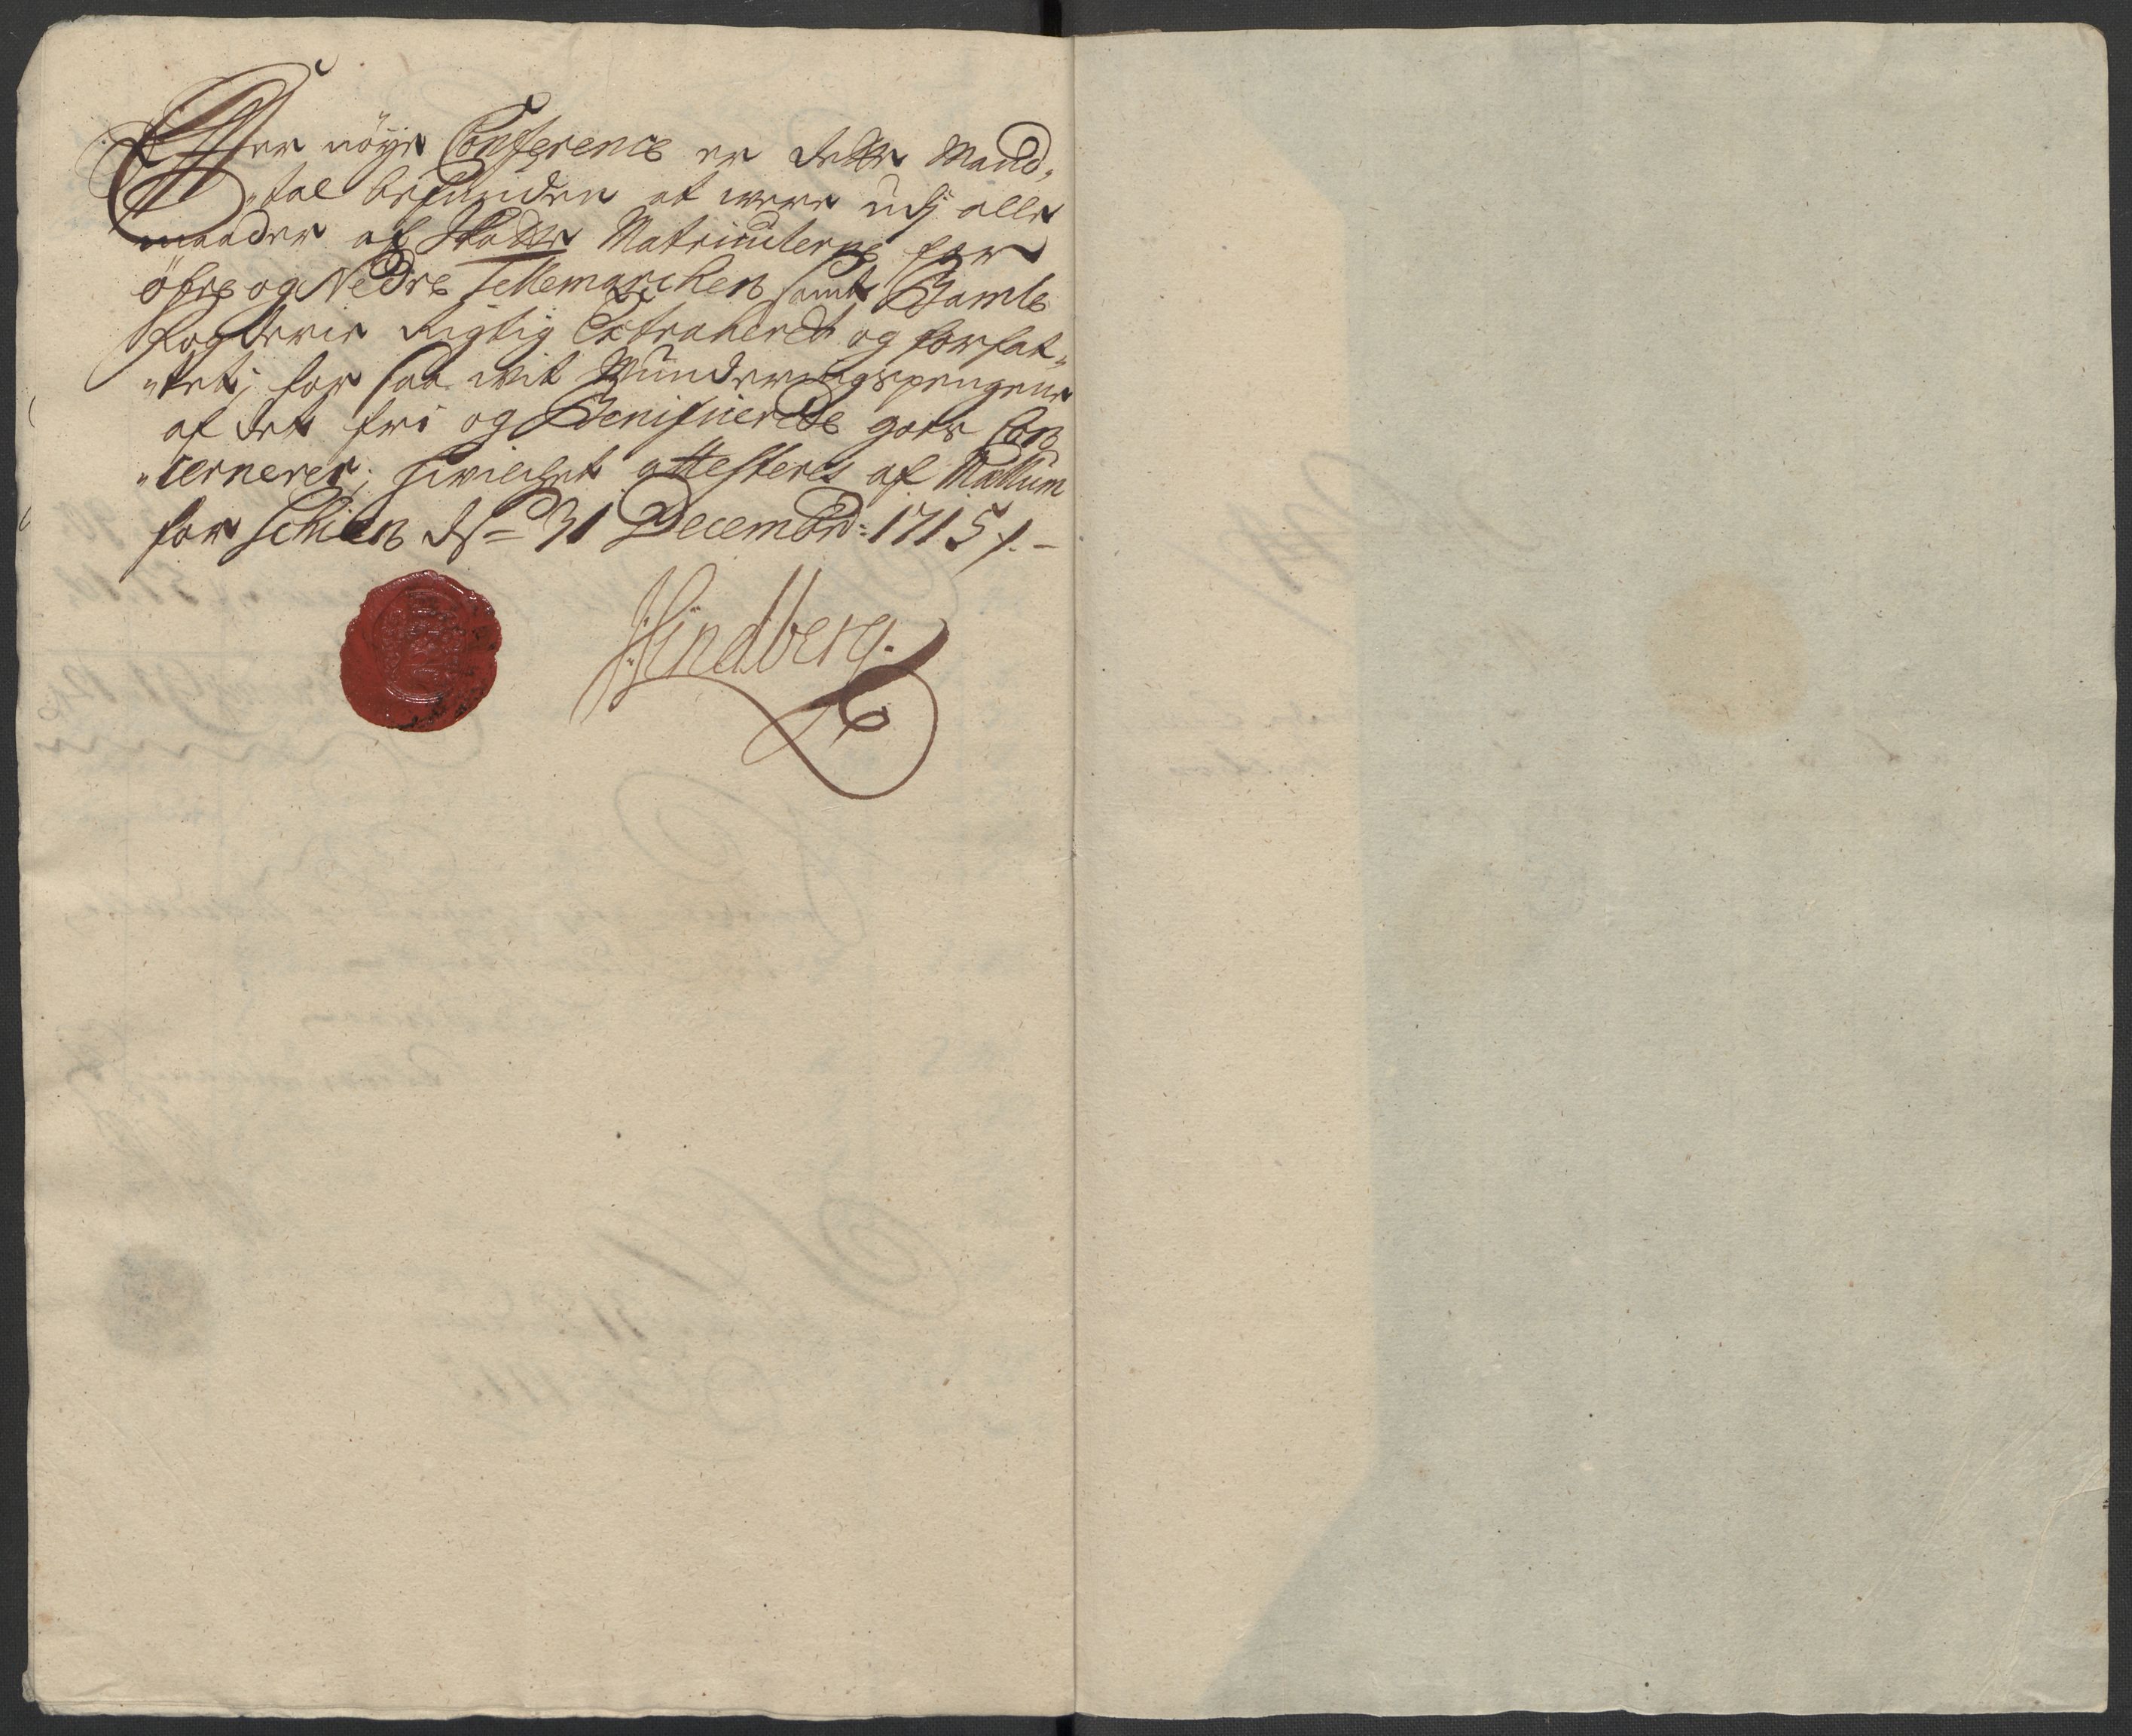 Efter nöye Conference er dette Mand„
„tal befunden at were udj alle
maader af Skatte Matriculerne for
öfre og Nedre Tellemarchen samt Bamble
fogderie Rigtig Extraherdt og forfat„
„tet; for saa wit Munderingspengene
af det frj og Benificerede gods Con
„cernerer; hwilchet attesteres af Mællum
for Schien ds= 31 Decembr: 1715 /. –
HHindberg.